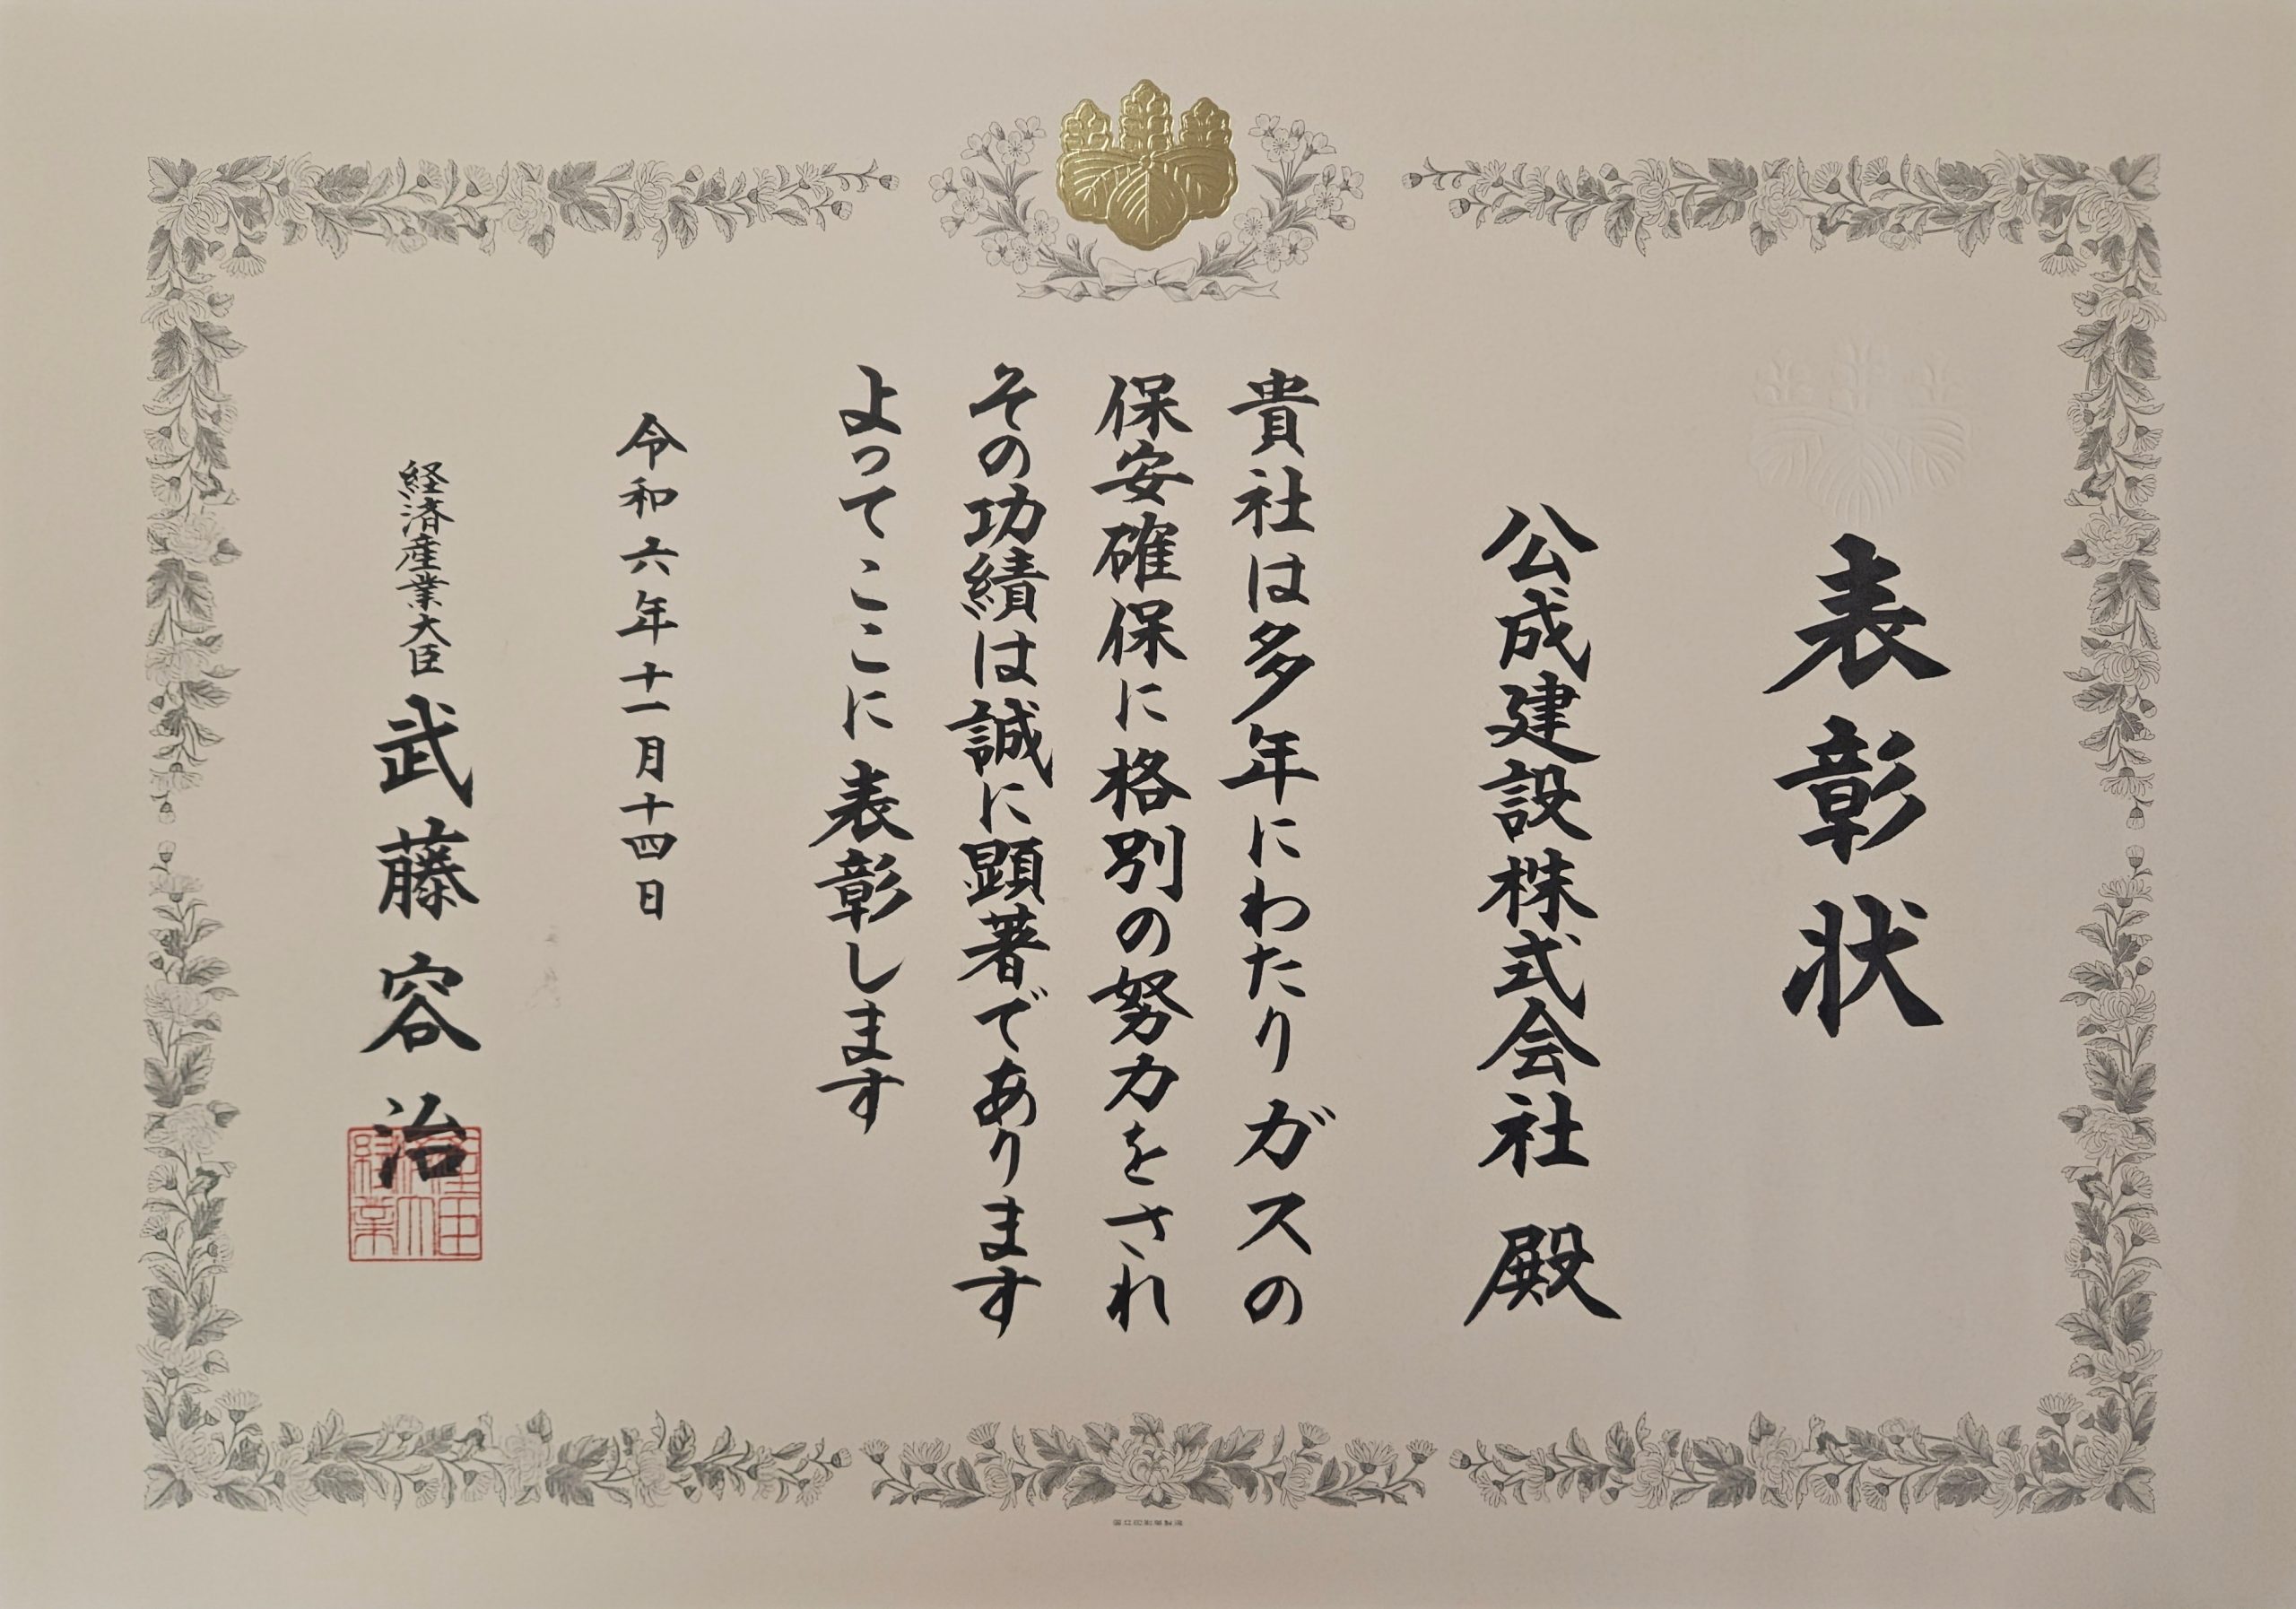 表彰状
公成建設株式会社 殿
貴社は多年にわたりガスの
保安確保に格別の努力をされ
その功績は誠に顕著であります
よってここに表彰します
令和六年十一月十四日
経済産業大臣 武藤容治